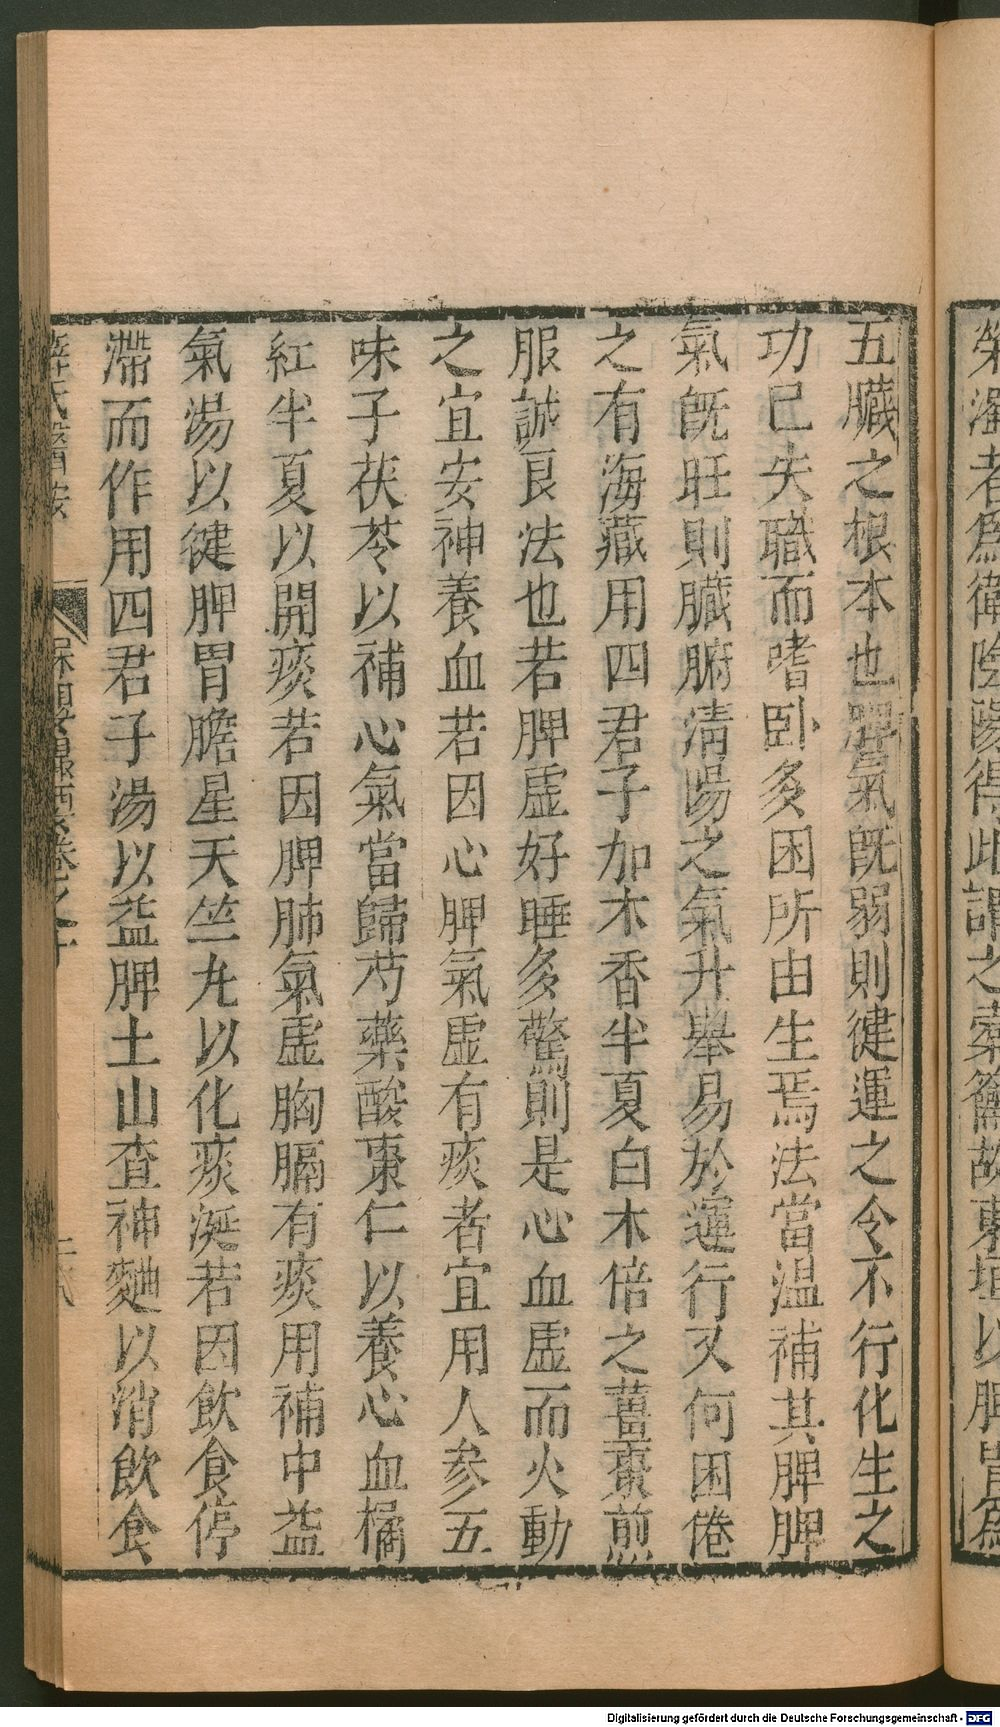 榮濁者爲衛陰陽得此謂之橐籥故東垣以脾胃爲
五臟之根本也脾氣旣弱則徤運之令不行化生之
功已失職而嗜卧多困所由生焉法當温補其脾脾
氣旣旺則臟腑清陽之氣升舉易於運行又何困倦
之有海藏用四君子加木香半夏白木倍之薑棗煎
服誠良法也若脾虛好睡多驚則是心血虛而火動
之宜安神養血若因心脾氣虛有痰者宜用人參五
味子茯苓以補心氣當歸芍藥酸棗仁以養心血橘
紅半夏以開痰若因脾肺氣虛胸膈有痰用補中益
氣湯以徤脾胃膽星天竺丸以化痰涎若因飲食停
滯而作用四君子湯以益脾土山查神麯以消飲食
薛氏醫按
保嬰撮要卷之十
Digitalisierung gefördert durch die Deutsche Forschungsgemeinschaft - DFG